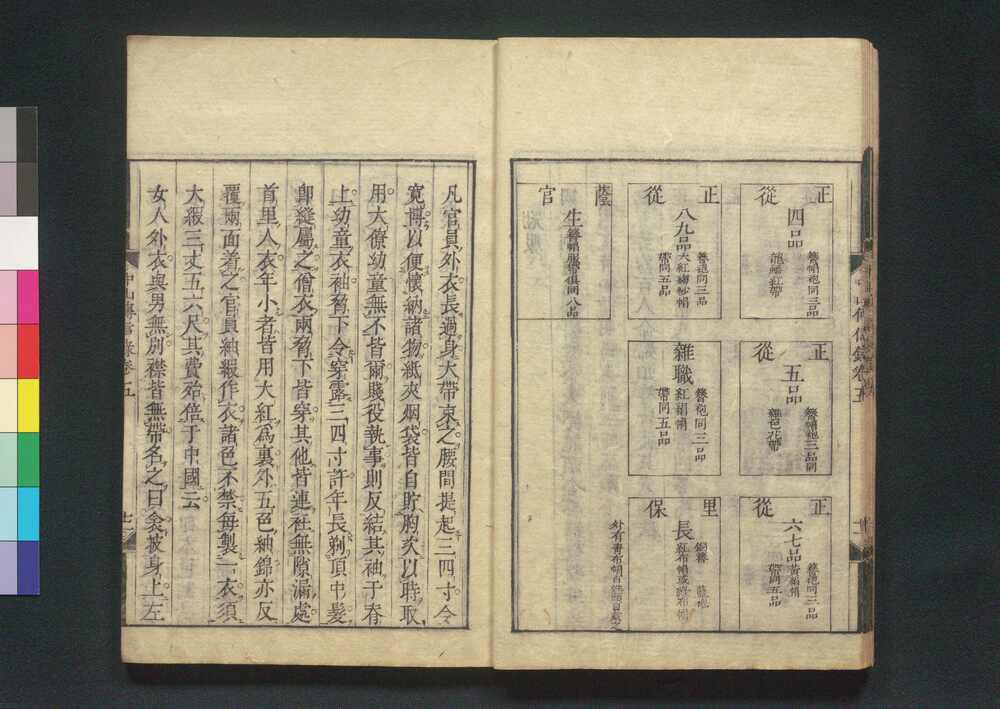 正從
四品
簪帽袍同三品
龍蟠紅帶
正從
五品
簪帽袍三品同
雜色花帶
正從
六七品
簪袍同三品
黃絹帽
帶同五品
正從
八九品
簪袍同三品
大紅縐紗帽
帶同五品
雜職
簪袍同三品
紅絹帽
帶同五品
里保
長
銅簪
藍袍
紅布帽或綠布帽
廕官
生
簪帽服帶俱同八品
凡官員外衣長過身大帶束之腰間提起三四寸令
寬博以便懷納諸物紙夾烟袋皆自貯胸次以時取
用大僚幼童無不皆爾賤役執事則反結其袖于脊
上幼童衣袖脅下令穿露三四寸許年長剃頂中髮
卽縫屬之僧衣兩脅下皆穿其他皆連袵無隙漏處
首里人衣年小者皆用大紅爲裏外五色紬錦亦反
覆兩面着之官員紬緞作衣諸色不禁每製一衣須
大緞三丈五六尺其費殆倍于中國云
女人外衣與男無別襟皆無帶名之曰衾披身上左
中山傳信錄卷五